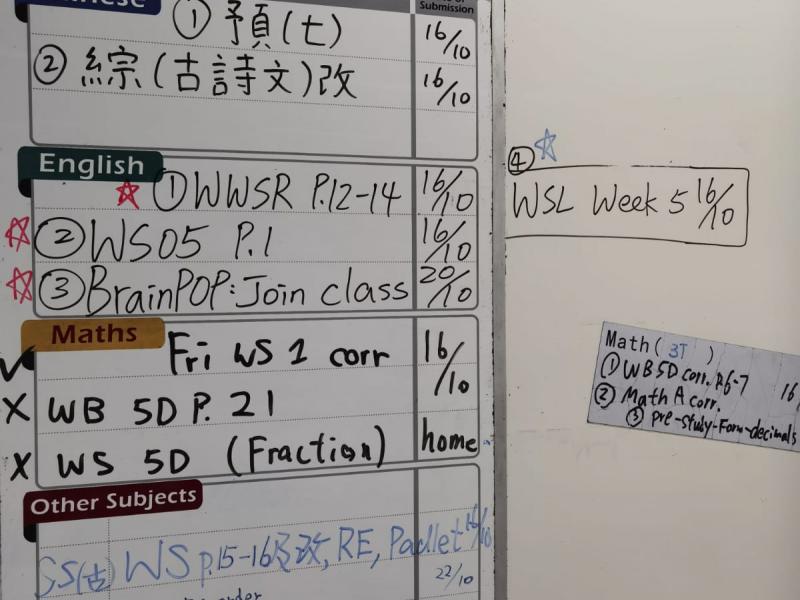 Submission
① 預(七) 16/10
② 綜(古詩文)改 16/10
English
① WWSR P.12-14 16/10
② WS05 P.1 16/10
③ BrainPOP: Join class 20/10
④
WSL Week 5 16/10
Maths
Fri WS 1 corr 16/10
WB 5D P. 21
WS 5D (Fraction) home
Math( 3T )
① WB 5D corr. P.6-7 16
② Math A corr.
③ Pre-study-Form-decimals
Other Subjects
WS P.15-16及改, RE, Padlet 16/10
22/10